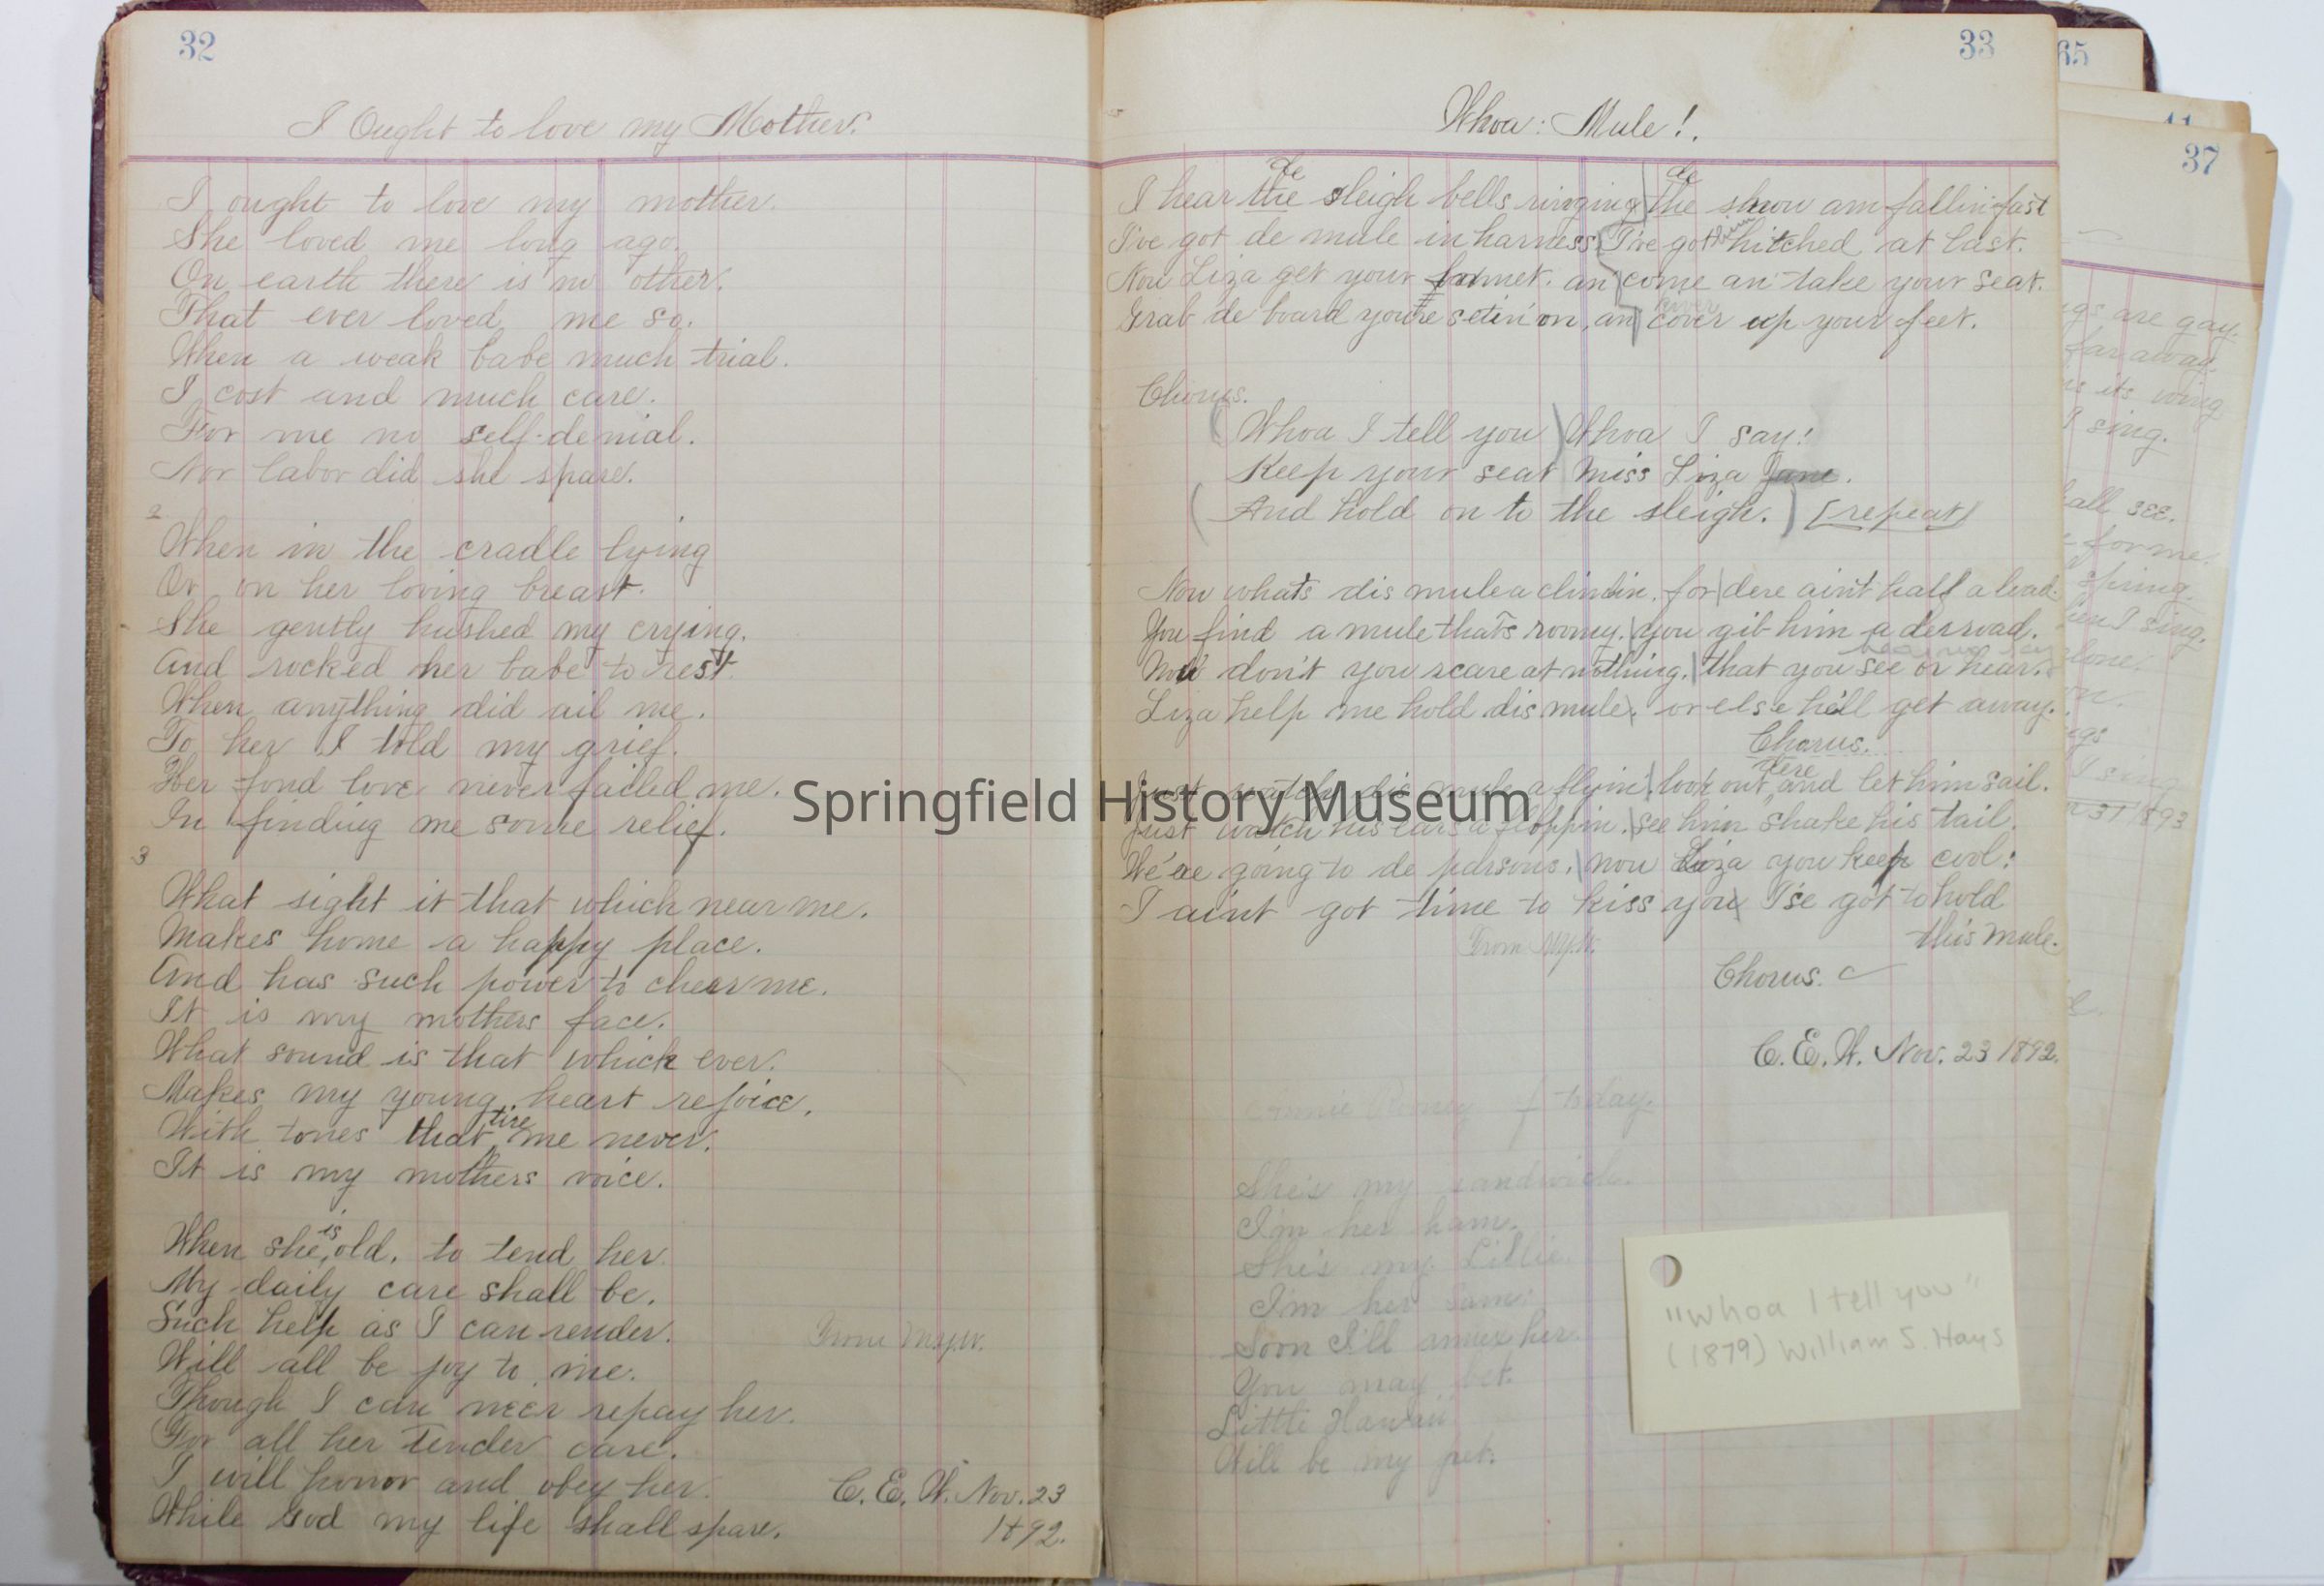 32
I Ought to love my Mother.
I ought to love my mother.
She loved me long ago.
On earth there is no other.
That ever loved me so.
When a weak babe much trial.
I cost and much care.
For me no self-denial.
Nor labor did she spare.
2
When in the cradle lying
Or on her loving breast.
She gently hushed my crying.
And rocked her babe to rest.
When anything did ail me.
To her I told my grief.
Her fond love never failed me.
In finding me some relief.
3
What sight it that which near me.
Makes home a happy place.
And has such power to cheer me.
It is my mothers face.
What sound is that which ever.
Makes my young heart rejoice.
With tones that tire me never.
It is my mothers voice.
When she is old, to tend her.
My daily care shall be.
Such help as I can render.
Will all be joy to me.
Though I can neer repay her.
For all her tender care.
I will honor and obey her.
While God my life shall spare.
From
C. E. W. Nov. 23
1892.
33
Whoa: Mule!.
de de
I hear the sleigh bells ringing the snow am fallin fast
I've got de mule in harness I've got him hitched at last.
Now Liza get your bonnet. an come an take your seat.
Grab de board you're setin' on, an cover up your feet.
Chorus.
(Whoa I tell you) Whoa I say!
Keep your seat Miss Liza Jane.
(And hold on to the sleigh.) [repeat]
Now whats dis mule a climbin. for dere ain't half a load.
You find a mule that's roomy. you gib him a de road.
Now don't you scare at nothing. that you see or hear.
Liza help me hold dis mule, or else he'll get away.
Chorus.
dere
Just watch dis mule a flyin' look out and let him sail.
Just watch his ears a floppin. see him shake his tail.
We'ae going to de parsons. now Liza you keep cool:
I aint got time to kiss you I'se got to hold
this mule.
From
Chorus.
C. E. W. Nov. 23 1892.
of today.
She's my sandwich.
I'm her ham.
She's my Lillie.
I'm her Sam.
Soon I'll annex her
You may bet.
Little Hawaii
Will be my pet.
"Whoa I tell you"
(1879) William S. Hays
65
41
37
gs are gay.
far away.
its wing
I sing.
all see.
for me.
spring.
I sing.
lone.
on.
gs
I sing
31 1893
Springfield History Museum